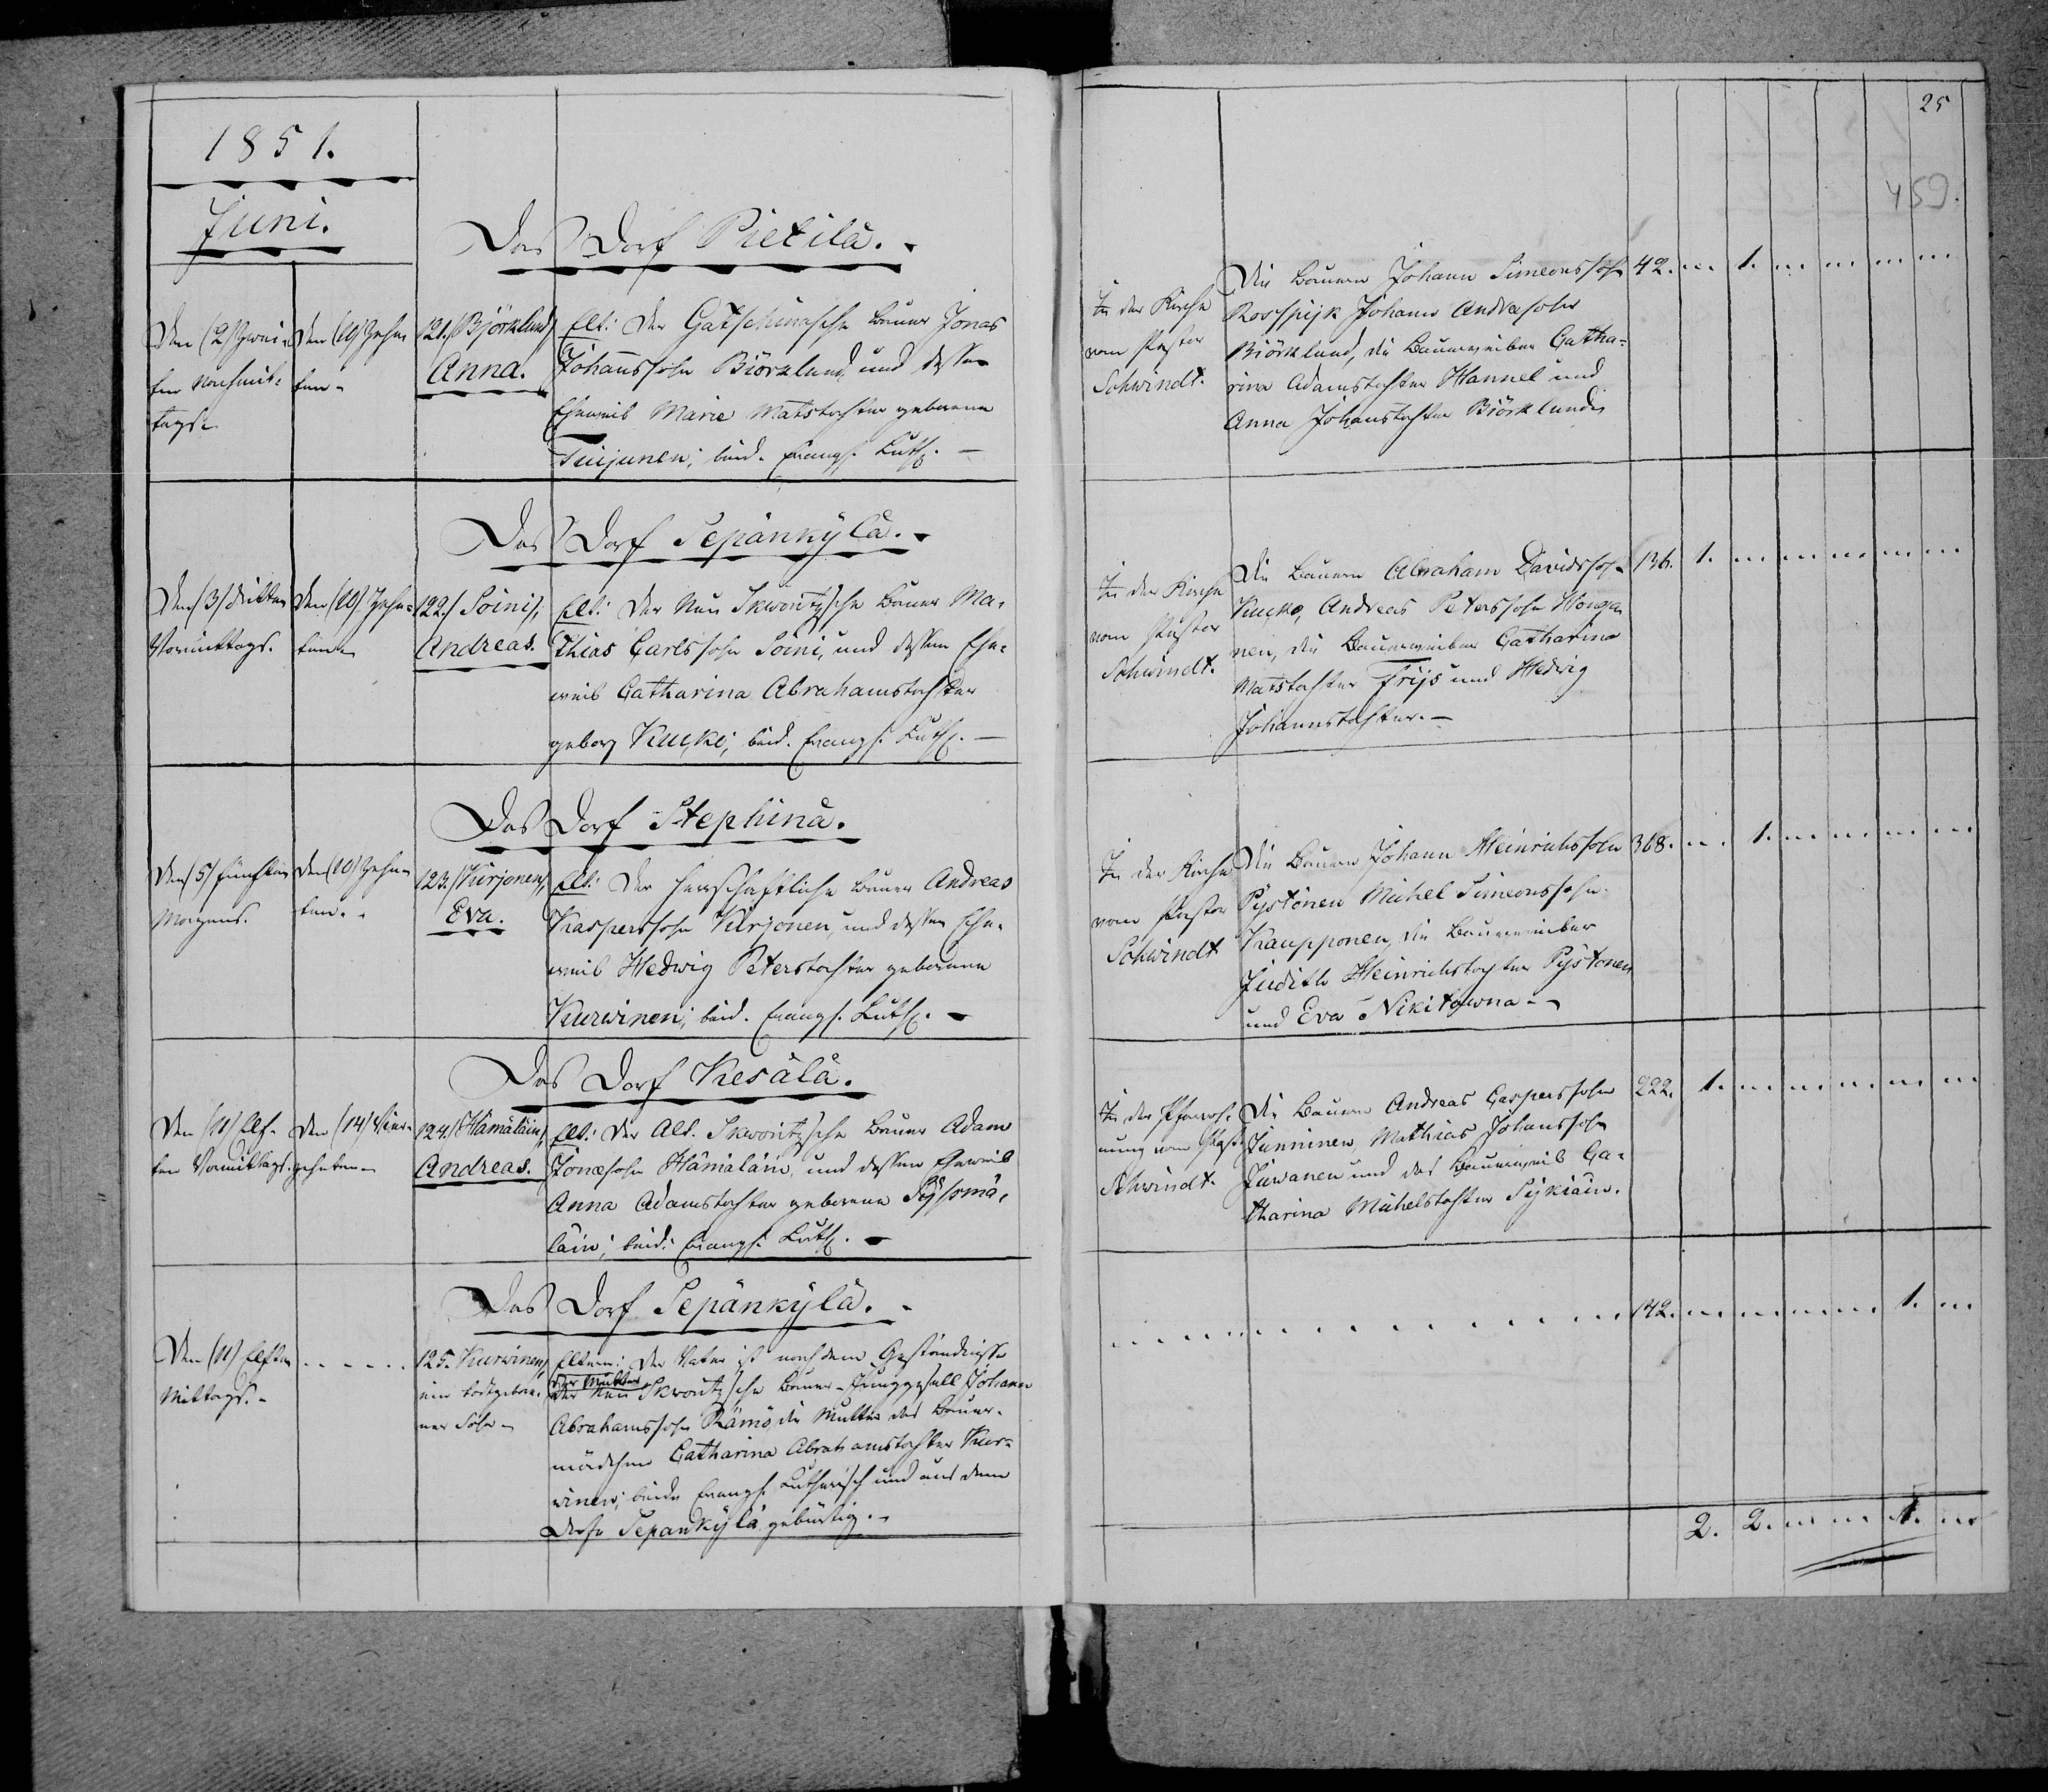 1851.
Juni.
Das Dorf Pietilä.
Den (2) zwei-
ten Nachmit-
tags.
Den (10) zehn-
ten.
121. /Björklund/
Anna.
Elt: Der Gatschinasche Bauer Jonas
Johanssohn Björklund und dessen
Eheweib Marie Matstochter geborene
Tuijunen; beid. Evangl. Luth.
Das Dorf Sepänkylä.
Den (3) dritten
Vormittags.
Den (10) Zehn-
ten
122. /Soini/,
Andreas.
Elt: Der Neu Skworitzsche Bauer Ma-
thias Carlssohn Soini, und dessen Ehe-
weib Catharina Abrahamstochter
gebor Kuckо; beid. Evangl. Luth.
Das Dorf Stephina.
Den (5) fünften
Morgens.
Den (10) Zehn-
ten.
123. /Kurjonen/,
Eva.
Elt: Der herrschaftliche Bauer Andreas
Kasperssohn Kurjonen, und dessen Ehe-
weib Hedwig Peterstochter geborene
Kurwinen; beid. Evangl. Luth.
Das Dorf Kesälä.
Den (11) Elf-
ten Vormittags.
Den (14) Vier-
zehnten
124. /Hämäläin/
Andreas.
Elt: Der Alt. Skworitzsche Bauer Adam
Jonassohn Hämäläin, und dessen Eheweib
Anna Adamstochter geborene
läin; beid: Evangl. Luth.
Das Dorf Sepänkylä.
Den (11) Elften
Mittags.
125. Kurwinen,
ein todtgebore-
ner Sohn
Eltern: Der Vater ist nach dem Geständnisse
der Mutter
der Neu Skworitzsche Bauer-Junggesell Johann
Abrahamssohn Rämö, die Mutter das Bauer-
mädchen Catharina Abrahamstochter Kur-
winen; beide Evangl. Lutherisch und aus dem
Dorfe Sepankylä gebürtig.
25
459.
In der Kirche
vom Pastor
Schwindt.
Die Bauern Johann Simeonssohn
Rosspijk Johann Andreasohn
Björklund, die Bauerweiber Catha-
rina Adamstochter Hannel und
Anna Johanstochter Björklund
42. 1.
In der Kirche
vom Pastor
Schwindt.
Die Bauern Abraham Davidssohn
Kucko, Andreas Peterssohn
nen, die Bauerweiber Catharina
Matstochter Trijs und Hedwig
Johannstochter.
136. 1.
In der Kirche
vom Pastor
Schwindt
Die Bauern Johann Heinrichssohn
Pystönen Michel Simeonssohn
Kaupponen, die Bauerweiber
Judith Heinrichstochter Pystönen
und Eva Nikitowna
368. 1.
In der Pfarrwoh-
nung vom Past.
Schwindt.
Die Bauern Andreas Casperssohn
Junninen, Mathias Johanssohn
Juwanen und das Bauerweib Ca-
tharina Michelstochter Sykiäin.
222. 1.
142. 1.
2. 2. 1.